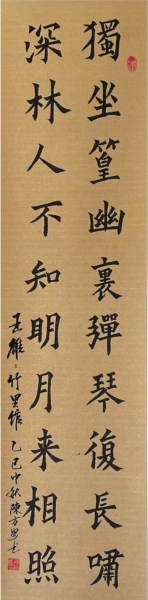 獨坐篁幽裏彈琴復長嘯
深林人不知明月来相照
王維〻竹里馆 乙巳中秋陳方思书